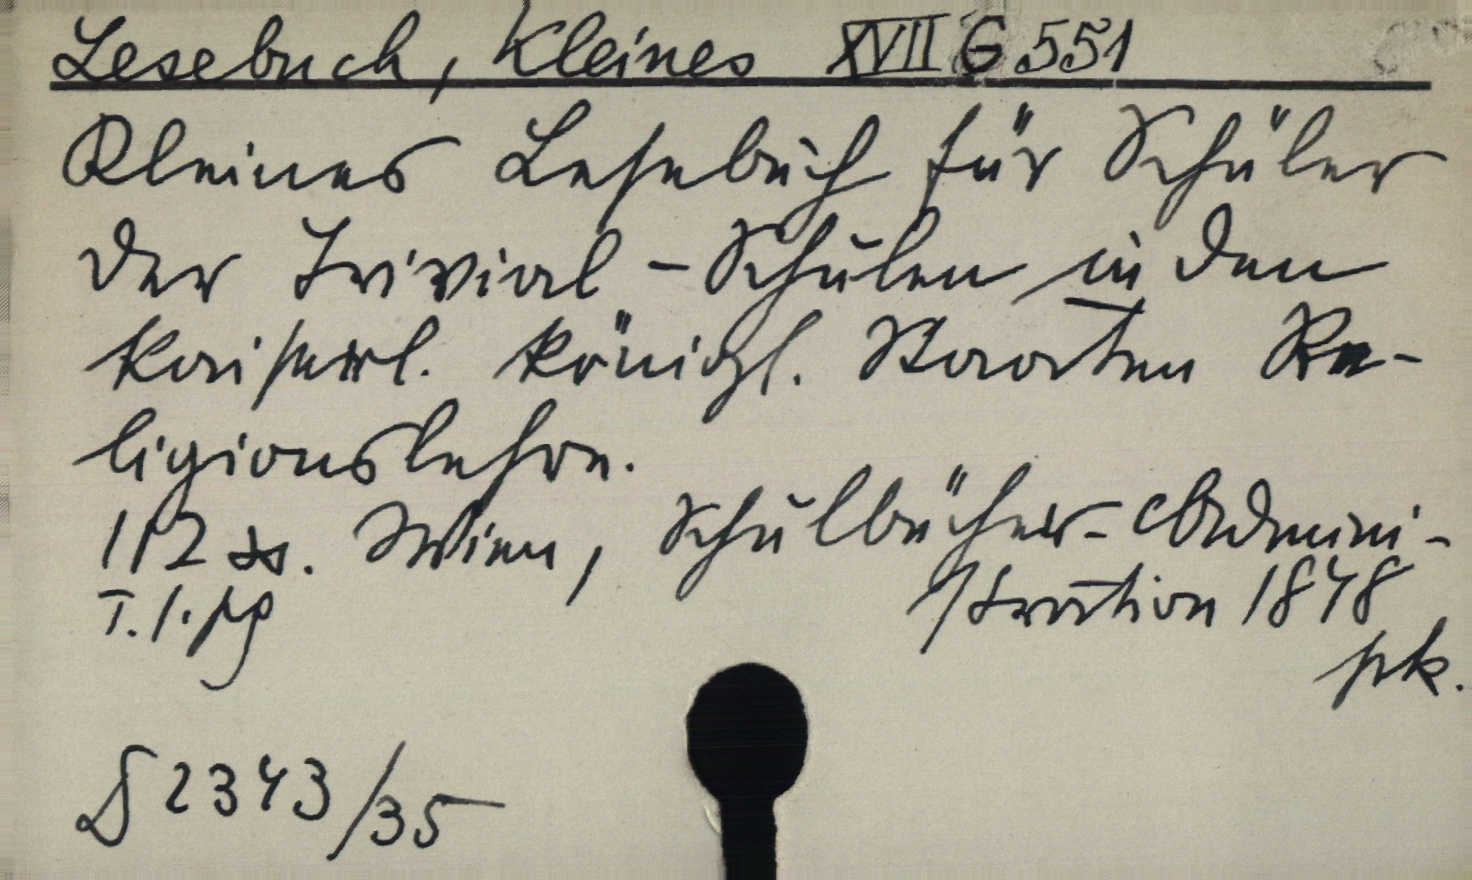 Lesebuch, Kleines XVII G 551
Kleines Lesebuch für Schüler
der Trivial-Schulen in den
kaiserl. königl. Staaten Re-
ligionslehre.
112 SS. Wien, Schulbücher-Admini-
stration 1848
pk.
D 2343/35